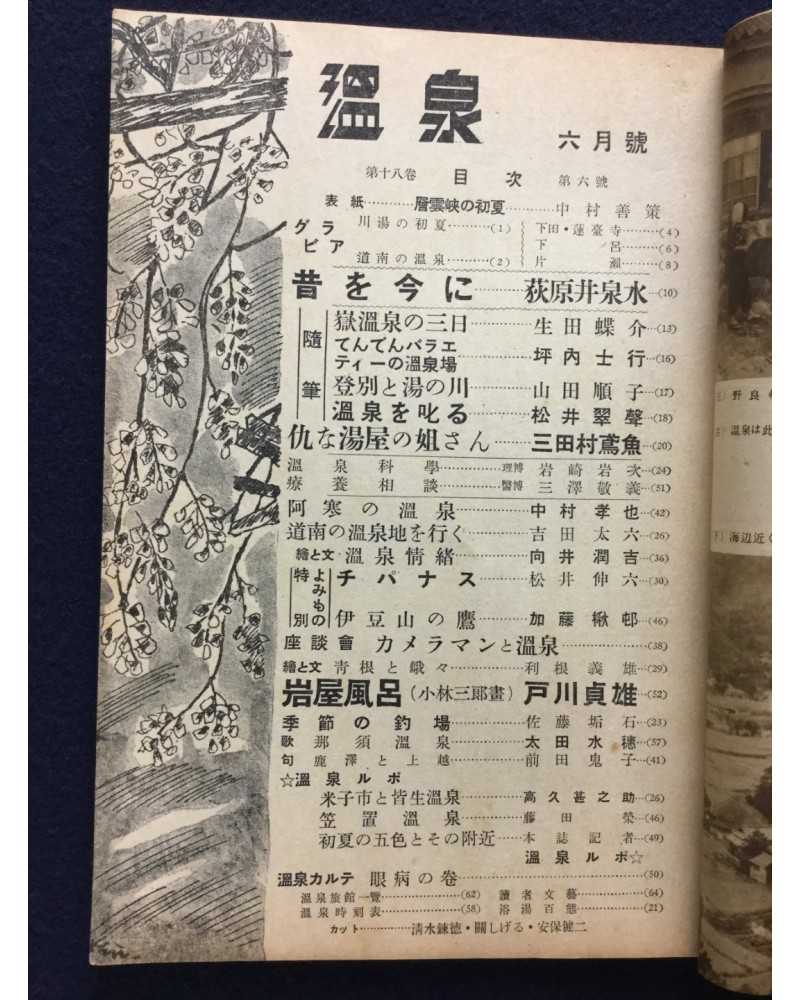 溫泉 六月號
第十八卷 目次 第六號
表紙…………層雲峡の初夏…………中村善策
グラビア
川湯の初夏………(1)
道南の溫泉………(2)
下田・蓮臺寺…(4)
下呂…(6)
片瀬…(8)
昔を今に……荻原井泉水…(10)
隨筆
嶽溫泉の三日…………生田蝶介…(13)
てんてんバラエティーの溫泉場…………坪內士行…(16)
登別と湯の川…………山田順子…(17)
溫泉を叱る…………松井翠聲…(18)
仇な湯屋の姐さん……三田村鳶魚…(20)
溫泉科學…………理博 岩崎岩次…(24)
療養相談…………醫博 三澤敬義…(51)
阿寒の溫泉…………中村孝也…(42)
道南の溫泉地を行く…………吉田太六…(26)
繪と文 溫泉情緒…………向井潤吉…(36)
特別よみもの
チパナス…………松井伸六…(30)
伊豆山の鷹…………加藤楸邨…(46)
座談會 カメラマンと溫泉…………(38)
繪と文 青根と蛾々…………利根義雄…(29)
岩屋風呂(小林三郎畫)戸川貞雄…(52)
季節の釣場…………佐藤垢石…(23)
歌 那須溫泉…………太田水穗…(57)
句 鹿澤と上越…………前田鬼子…(41)
☆溫泉ルポ
米子市と皆生溫泉…………高久甚之助…(26)
笠置溫泉…………藤田榮…(46)
初夏の五色とその附近…本誌記者…(49)
溫泉ルポ☆
溫泉カルテ 眼病の卷…………(50)
溫泉旅館一覽…………(62) 讀者文藝…………(64)
溫泉時刻表…………(58) 浴湯百態…………(21)
カット…………清水錬徳・關しげる・安保健二
野良
溫泉は此
海辺近く